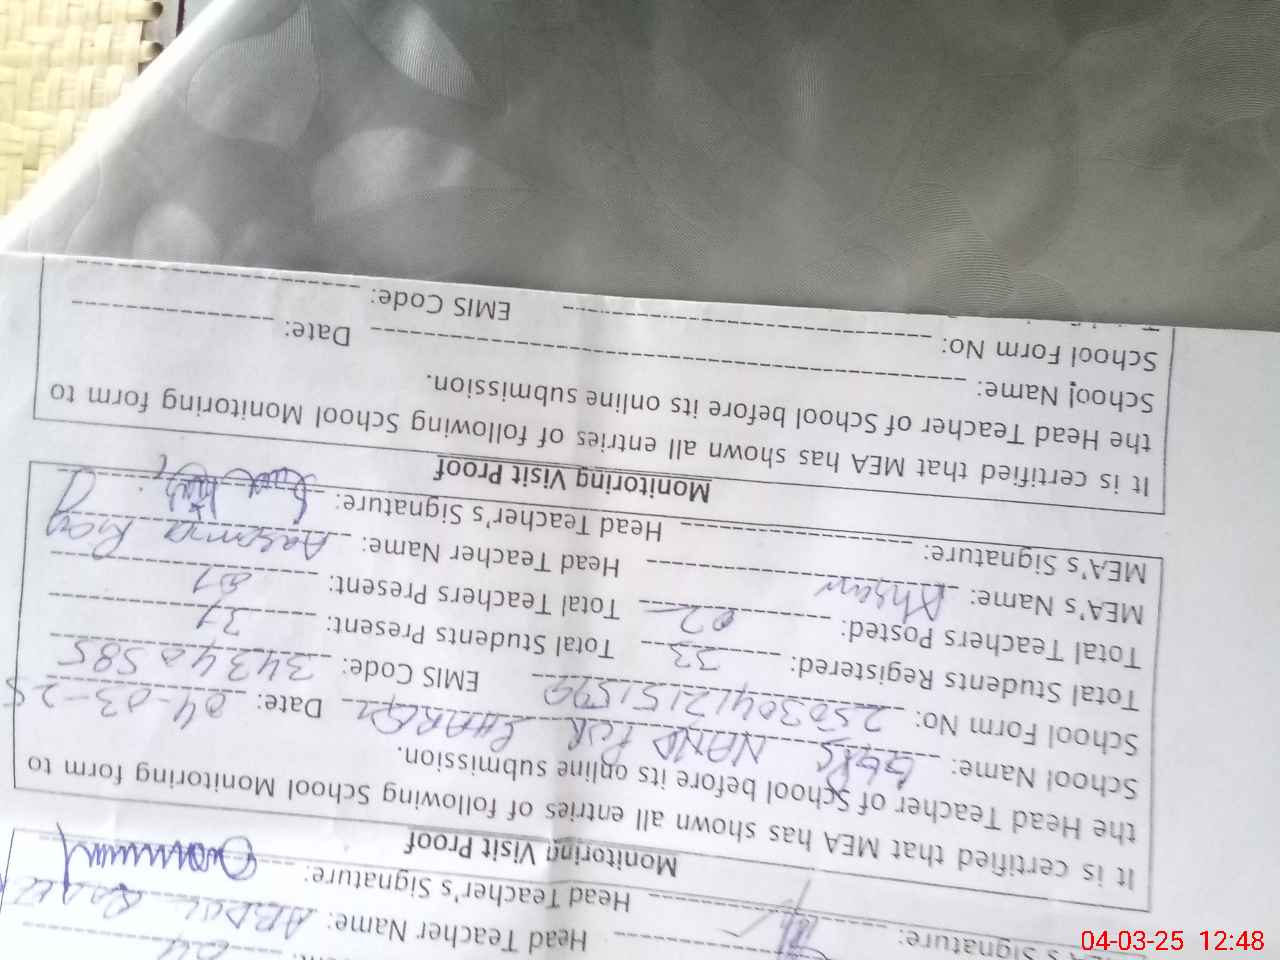 Head Teacher Name: ABDUL
Signature: Head Teacher's Signature:
Monitoring Visit Proof
It is certified that MEA has shown all entries of following School Monitoring form to
the Head Teacher of School before its online submission.
School Name: NAND PUR SHARQI Date: 04-03-25
School Form No: EMIS Code: 34340585
Total Students Registered: 33 Total Students Present: 31
Total Teachers Posted: 02 Total Teachers Present: 01
MEA's Name: Ahsan Head Teacher Name: Aasma
MEA's Signature: Head Teacher's Signature:
Monitoring Visit Proof
It is certified that MEA has shown all entries of following School Monitoring form to
the Head Teacher of School before its online submission.
School Name: Date:
School Form No: EMIS Code:
04-03-25 12:48